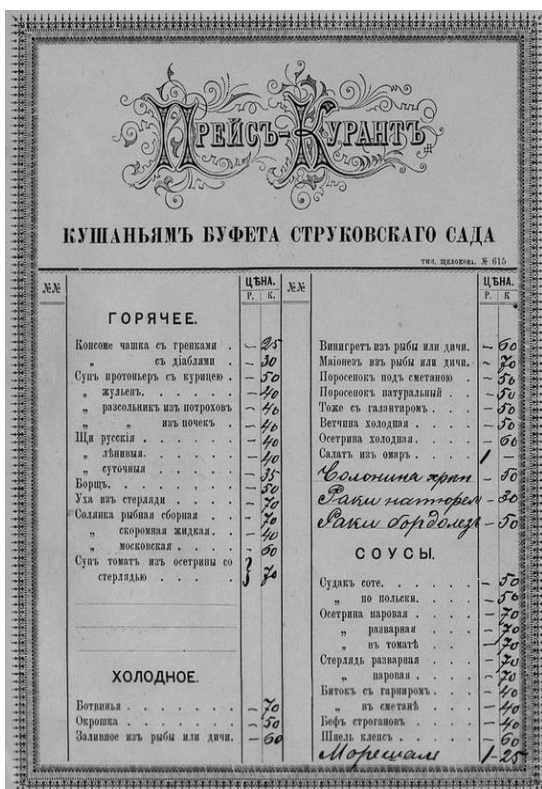 ПРЕЙСЪ-КУРАНТЪ
КУШАНЬЯМЪ БУФЕТА СТРУКОВСКАГО САДА
тип. щелокова. № 615
№№ ЦѢНА.
Р. К.
ГОРЯЧЕЕ.
Консоме чашка съ гренками . – 25
„ съ діаблями . – 30
Супъ протоньеръ съ курицею . – 50
„ жульенъ. . . . . . – 40
„ разсольникъ изъ потроховъ – 40
„ „ изъ почек . – 40
Щи русскія . . . . . . – 40
„ лѣнивыя. . . . . . – 40
„ суточныя . . . . . – 35
Борщъ. . . . . . . . – 50
Уха изъ стерляди . . . . – 70
Солянка рыбная сборная . . – 70
„ скоромная жидкая. . – 40
„ московская . . . . – 60
Супъ томатъ изъ осетрины со
стерлядью . . . . . } 70
ХОЛОДНОЕ.
Ботвинья . . . . . . . – 70
Окрошка . . . . . . . – 50
Заливное изъ рыбы или дичи. – 60
№№ ЦѢНА.
Р. К
Винигретъ изъ рыбы или дичи. – 60
Маіонезъ изъ рыбы или дичи. – 70
Поросенокъ подъ сметаною . – 50
Поросенокъ натуральный . – 50
Тоже съ галантиромъ . . . – 50
Ветчина холодная . . . . – 50
Осетрина холодная. . . . – 60
Салатъ изъ омаръ . . . . 1 –
Солонина хрѣн – 50
Раки натюрель – 30
Раки бордолезъ – 50
СОУСЫ.
Судакъ соте. . . . . . . – 50
„ по польски. . . . . – 50
Осетрина паровая . . . . – 70
„ разварная . . . – 70
„ въ томатѣ . . . – 70
Стерлядь разварная . . . – 70
„ паровая . . . . – 70
Битокъ съ гарниромъ. . . . – 40
„ въ сметанѣ . . . . – 40
Бефъ строгановъ . . . . – 40
Шнель клепсъ . . . . . – 60
1 – 25